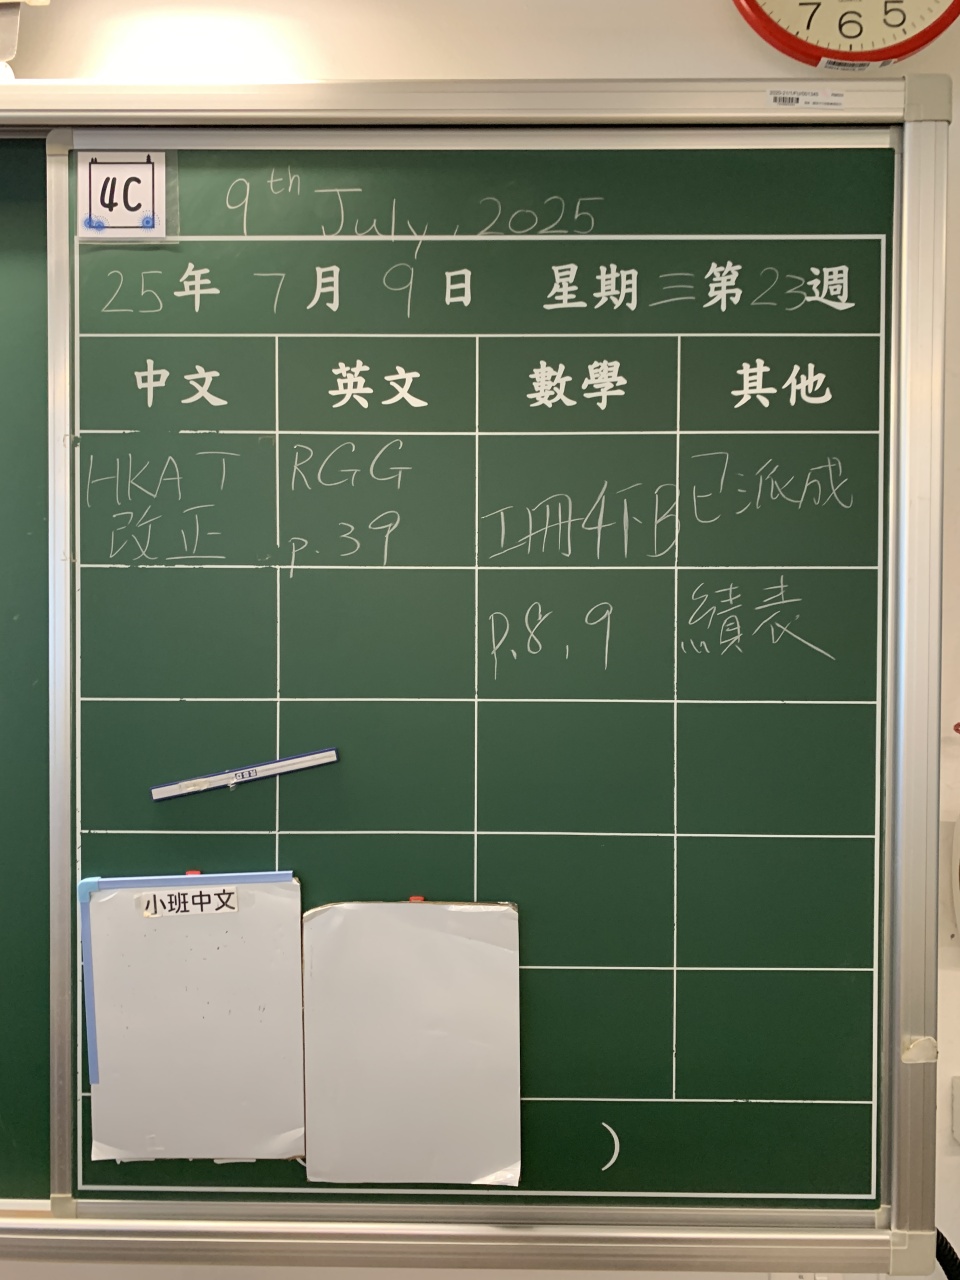 7 6 5
4C
9th July, 2025
25年 7月 9日 星期三第23週
中文 英文 數學 其他
HKAT
改正
RGG
p.39
工冊4下B
P.8, 9
已派成
績表
小班中文
)